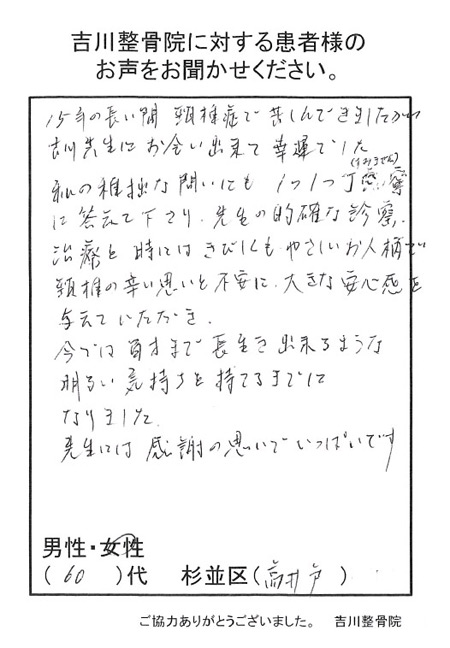 吉川整骨院に対する患者様の
お声をお聞かせください。
15年の長い間 頸椎症で苦しんできましたが
吉川先生にお会い出来て幸運でした
(すみません)
私の稚拙な問いにも 1つ1つ丁寧
に答えて下さり、先生の的確な診察、
治療と時にはきびしくもやさしいお人柄で
頸椎の辛い思いと不安に、大きな安心感を
与えていただき、
今では百才まで長生き出来るような
明るい気持ちを持てるまでに
なりました。
先生には感謝の思いでいっぱいです
男性・女性
(60)代 杉並区(高井戸)
ご協力ありがとうございました。 吉川整骨院